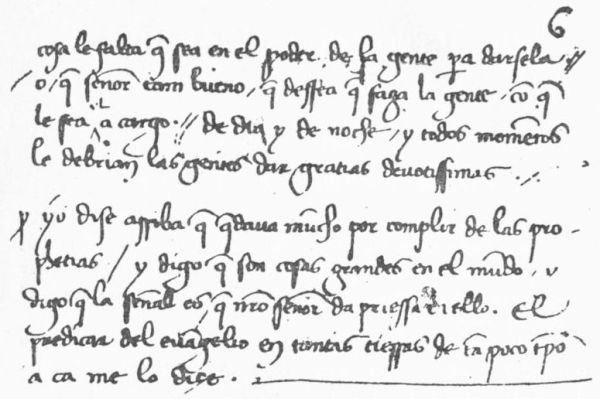 6
cosa le falta q̃ sea en el poder de la gente pa darsela //
/ o, q̃ señor tam bueno, q̃ dessea q̃ faga la gente, cõ q̃
le sea a el cargo . // de dia y de noche, y todos momẽtos
le debrian las gentes dar gratias devotissimas . //.
yo dise arriba q̃ q̃dava mucho por complir de las pro-
phetias / y digo q̃ son cosas grandes en el mũdo, y
digo q̃ la señal es q̃ nr̃o señor da priessa en ello . El
predicar del evãgelio en tantas tierras de tã poco tp̃o
a ca me lo dise .